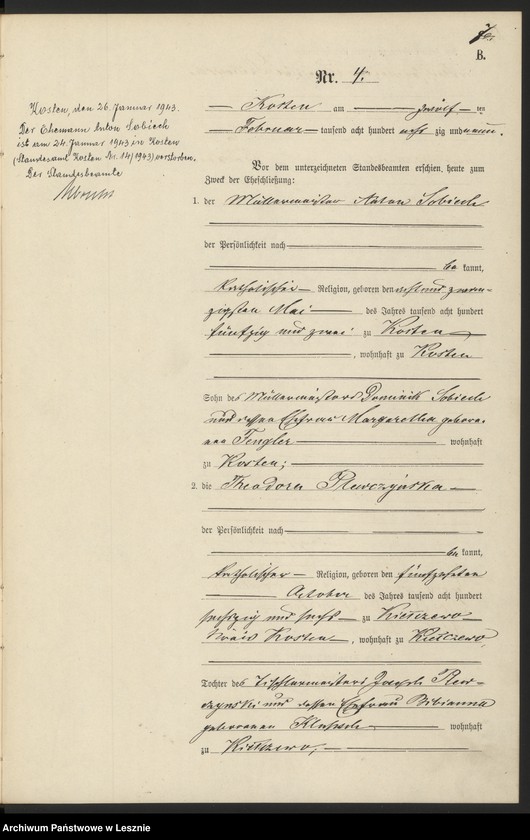 B.
Nr. 4.
Kosten, den 26. Januar 1943.
Der Ehemann Anton Sobiech
ist am 24. Januar 1943 in Kosten
(Standesamt Kosten Nr. 14/1943) verstorben.
Der Standesbeamte
Kosten am zwölf ten
Februar tausend acht hundert acht zig und neun.
Vor dem unterzeichneten Standesbeamten erschienen heute zum
Zweck der Eheschließung:
1. der Müllermeister Anton Sobiech
der Persönlichkeit nach
be kannt,
katholischer Religion, geboren den acht und zwan-
zigsten Mai des Jahres tausend acht hundert
fünfzig und zwei zu Kosten
, wohnhaft zu Kosten
Sohn des Müllermeisters Dominik Sobiech
und dessen Ehefrau Margaretha gebore-
nen Tengler wohnhaft
zu Kosten;
2. die Theodora
der Persönlichkeit nach
be kannt,
katholischer Religion, geboren den fünfzehnten
October des Jahres tausend acht hundert
sechszig und sechs zu Kiełczewo
Kreis Kosten, wohnhaft zu Kiełczewo,
Tochter des Tischlermeisters Joseph
und dessen Ehefrau Bibianna
geborenen wohnhaft
zu Kiełczewo,
Archiwum Państwowe w Lesznie